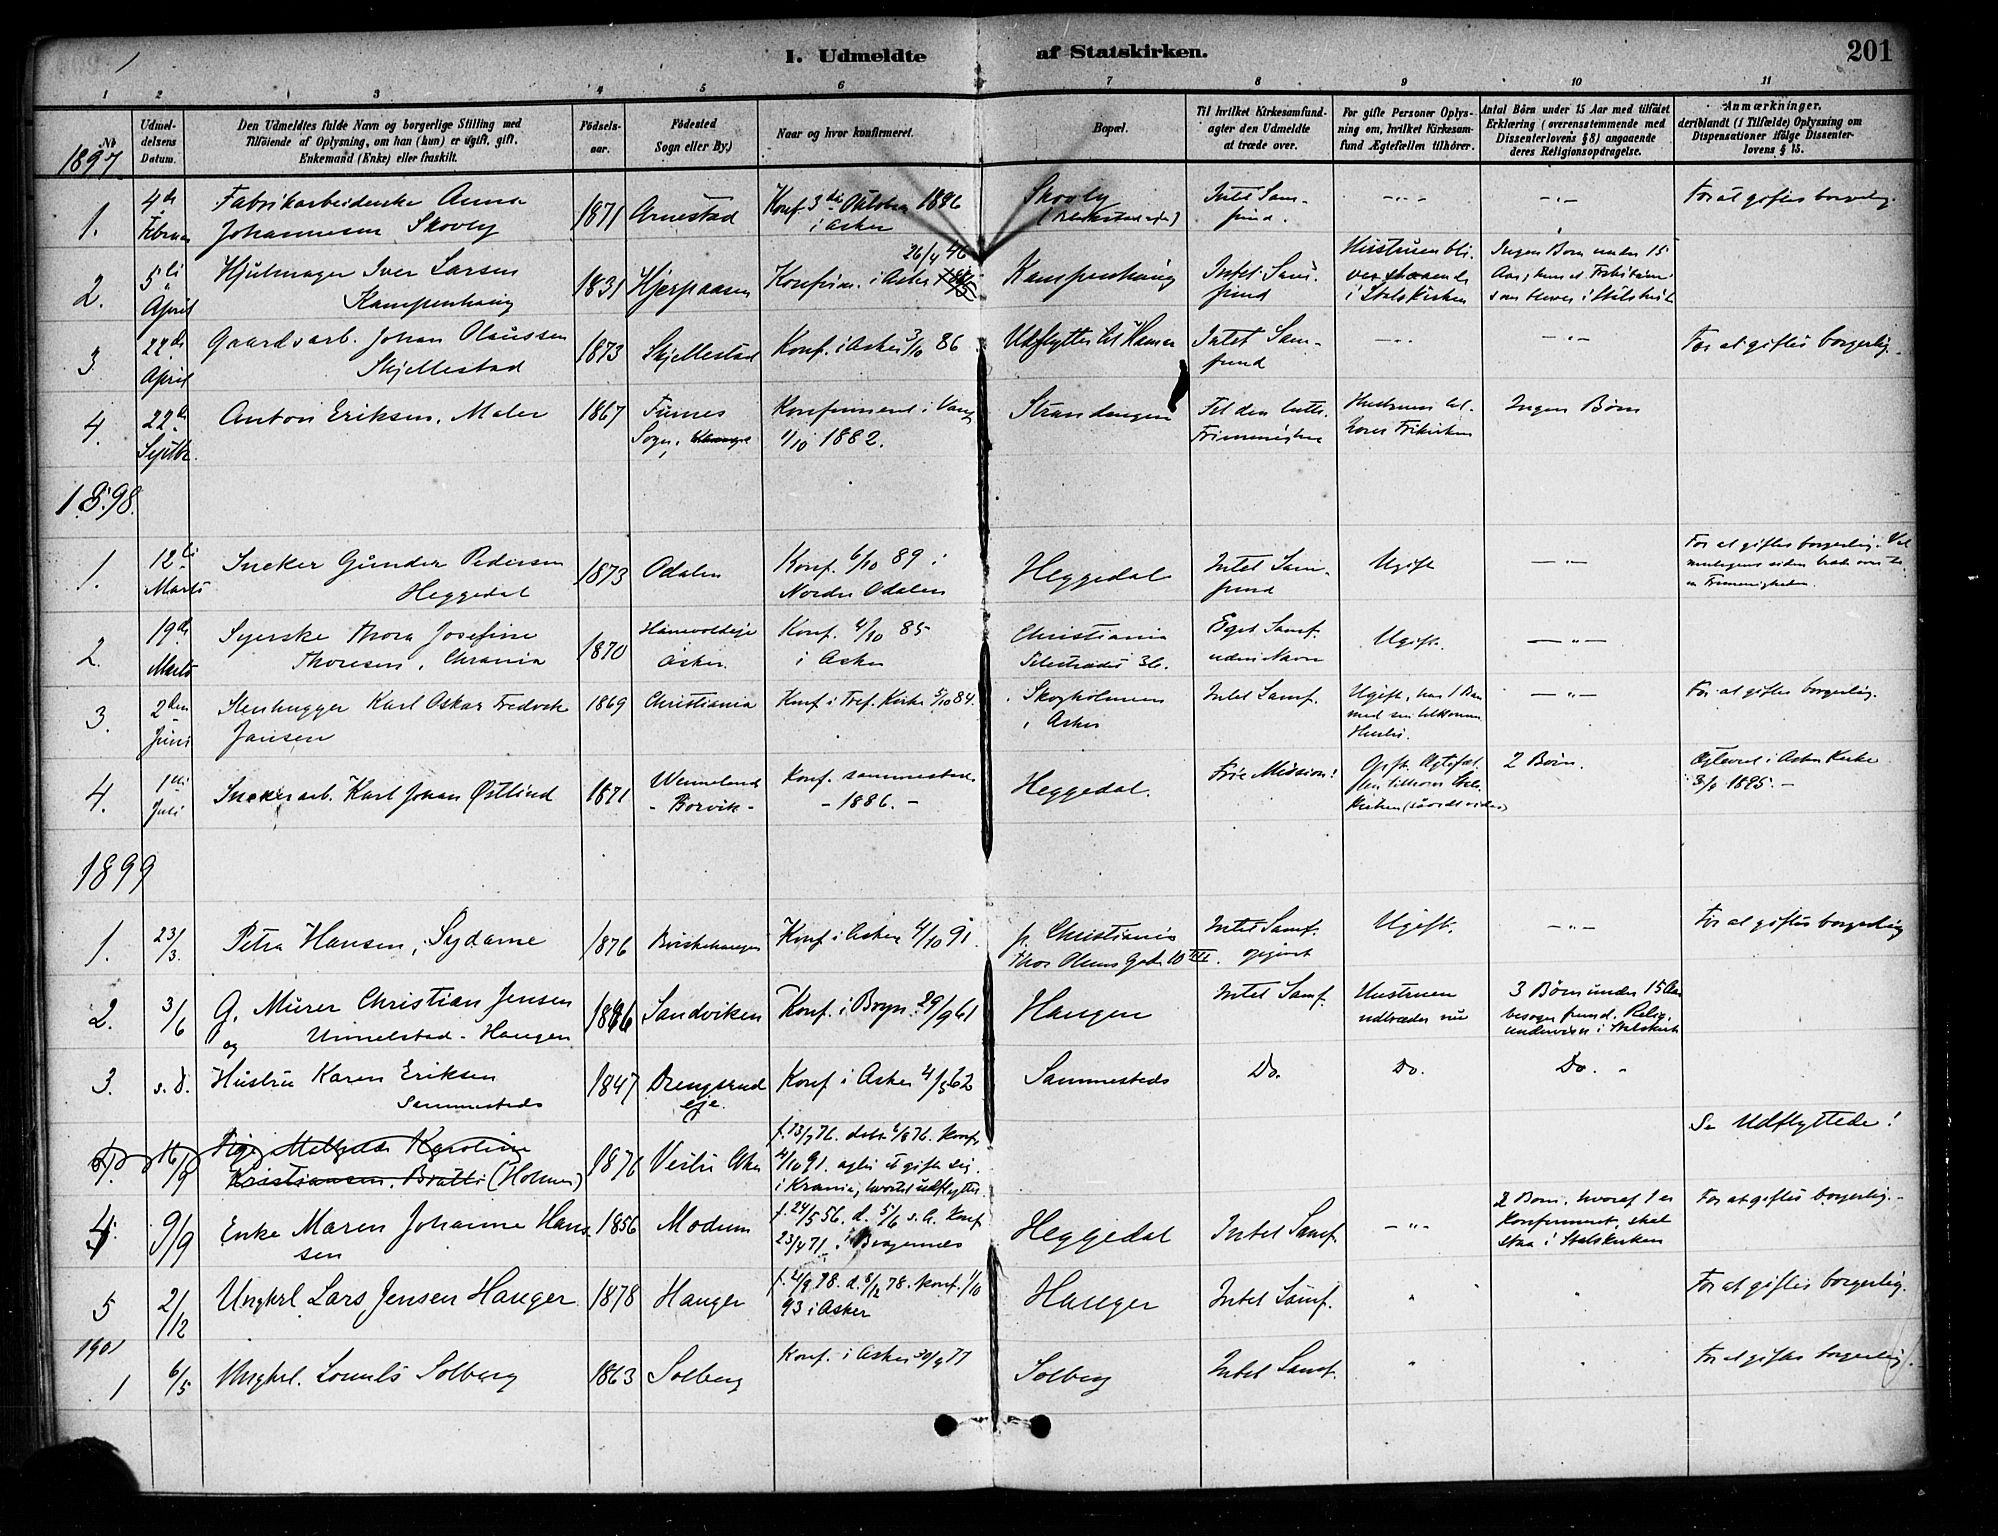 I. Udmeldte af Statskirken. 201
1 2 3 4 5 6 7 8 9 10 11
No.
Udmeldelsens Datum.
Den Udmeldtes fulde Navn og borgerlige Stilling med
Tilføiende af Oplysning, om han (hun) er ugift, gift,
Enkemand (Enke) eller fraskilt.
Fødselsaar.
Fødested
Sogn eller By.)
Naar og hvor konfirmeret.
Bopæl.
Til hvilket Kirkesamfund-
agter den Udmeldte
at træde over.
For gifte Personer Oplys-
ning om, hvilket Kirkesam-
fund Ægtefællen tilhører.
Antal Børn under 15 Aar med tilføiet
Erklæring (overensstemmende med
Dissenterlovens § 8) angaaende
deres Religionsopdragelse.
Anmærkninger.
deriblandt (i Tilfælde) Oplysning om
Dispensationer ifølge Dissenter-
lovens § 15.
1897
1. 4de Februar Fabrikarbeiderske Anna Johannesen Skovly 1871 Arnestad Konf. 3die Oktober 1886 i Asker Skovly Intet Samfund. For at giftes borgerlig.
2. 5te April Hjulmager Iver Larsen Kampenhaug 1831 Hjerpaasen Konfirm. i Asker 26/4 46 Kampenhaug Intet Samfund Hustruen bliver staaende i Statskirken Ingen Børn under 15 Aar,
3. 22de April Gaardsarb. Johan Olaussen Skjellestad 1873 Skjellestad Konf. i Asker 3/10 86. Udflyttet til Hamar Intet Samfund For at giftes borgerlig.
4. 22de Septbr. Anton Eriksen, Maler 1867 Furnes Sogn, Konfirmeret i Vang 1/10 1882. Strandengen Til den luth. Frimenighed Hustruen tilhører Frikirken Ingen Børn
1898.
1. 12te Marts Snekker Gunder Pedersen Heggedal 1873 Odalen Konf. 6/10 89 i Nordre Odalen Heggedal Intet Samfund Ugift For at giftes borgerlig.
2. 19de Marts Syerske Thora Josefine Thoresen, Chrania 1870 Asker. Konf. 4/10 85 i Asker Christiania 36. Eget Samf. uden Navn Ugift.
3. 2den Juni Stenhugger Karl Oskar Fredrik Jansen 1869 Christiania Konf. i Tref. Kirke 5/10 84. Skogholmen i Asker Intet Samf. Ugift, har 1 Barn med sin tilkomm. Hustru. For at giftes borgerlig.
4. 1ste Juli Snekkerarb. Karl Johan Østlind 1871 Wermeland - Borvik - Konf. sammesteds - 1886. - Heggedal. Frie Mission! 2 Børn. Ægteviet i Asker Kirke 1895. -
1899
1. 23/3. Petra Hansen, Sydame 1876 Konf. i Asker 4/10 91. p. Christiania Thor Olsens Gade 10 III. Intet Samf. opgivet Ugift. For at giftes borgerlig
2. 3/6 G. Murer Christian Jensen og Unnelstad - Haugen Sandviken Konf. i Bogn. 29/9 61 Haugen Intet Samf. Hustruen udtræder nu 3 Børn under 15 Aar besøger Relig. undervisn. i Statskirk.
3. s. d. Hustru Karen Eriksen Sammesteds 1847 Drengsrud eje. Konf. i Asker 4/5 62 Sammesteds Do. Do. Do.
16/9 Pige Karoline Kristiansen, Bratli (Holmen) 1876 Vestre Asker f. 13/7 76. døbt 6/8 76. Konf. 4/10 91. agter at gifte sig i Krania, hvortil udflyttet. Se Udflyttede!
4. 9/9 Enke Maren Johanne Hansen 1856 Modum f. 24/5 56. d. 5/6 s. A. Konf. 23/4 71. i Bragernes Heggedal Intet Samf. 2 Børn, hvoraf 1 er konfirmeret, skal staa i Statskirken For at giftes borgerlig.
5 2/12 Ungkrl. Lars Jensen Hauger 1878 Hauger f. 21/9 78. d. 8/12 78. Konf. 1/10 93 i Asker Hauger Intet Samf. " " For at giftes borgerlig.
1901
1 6/5 Ungkrl. Solberg 1863 Solberg Konf. i Asker 30/9 77 Solberg Intet Samf. " " For at giftes borgerlig.